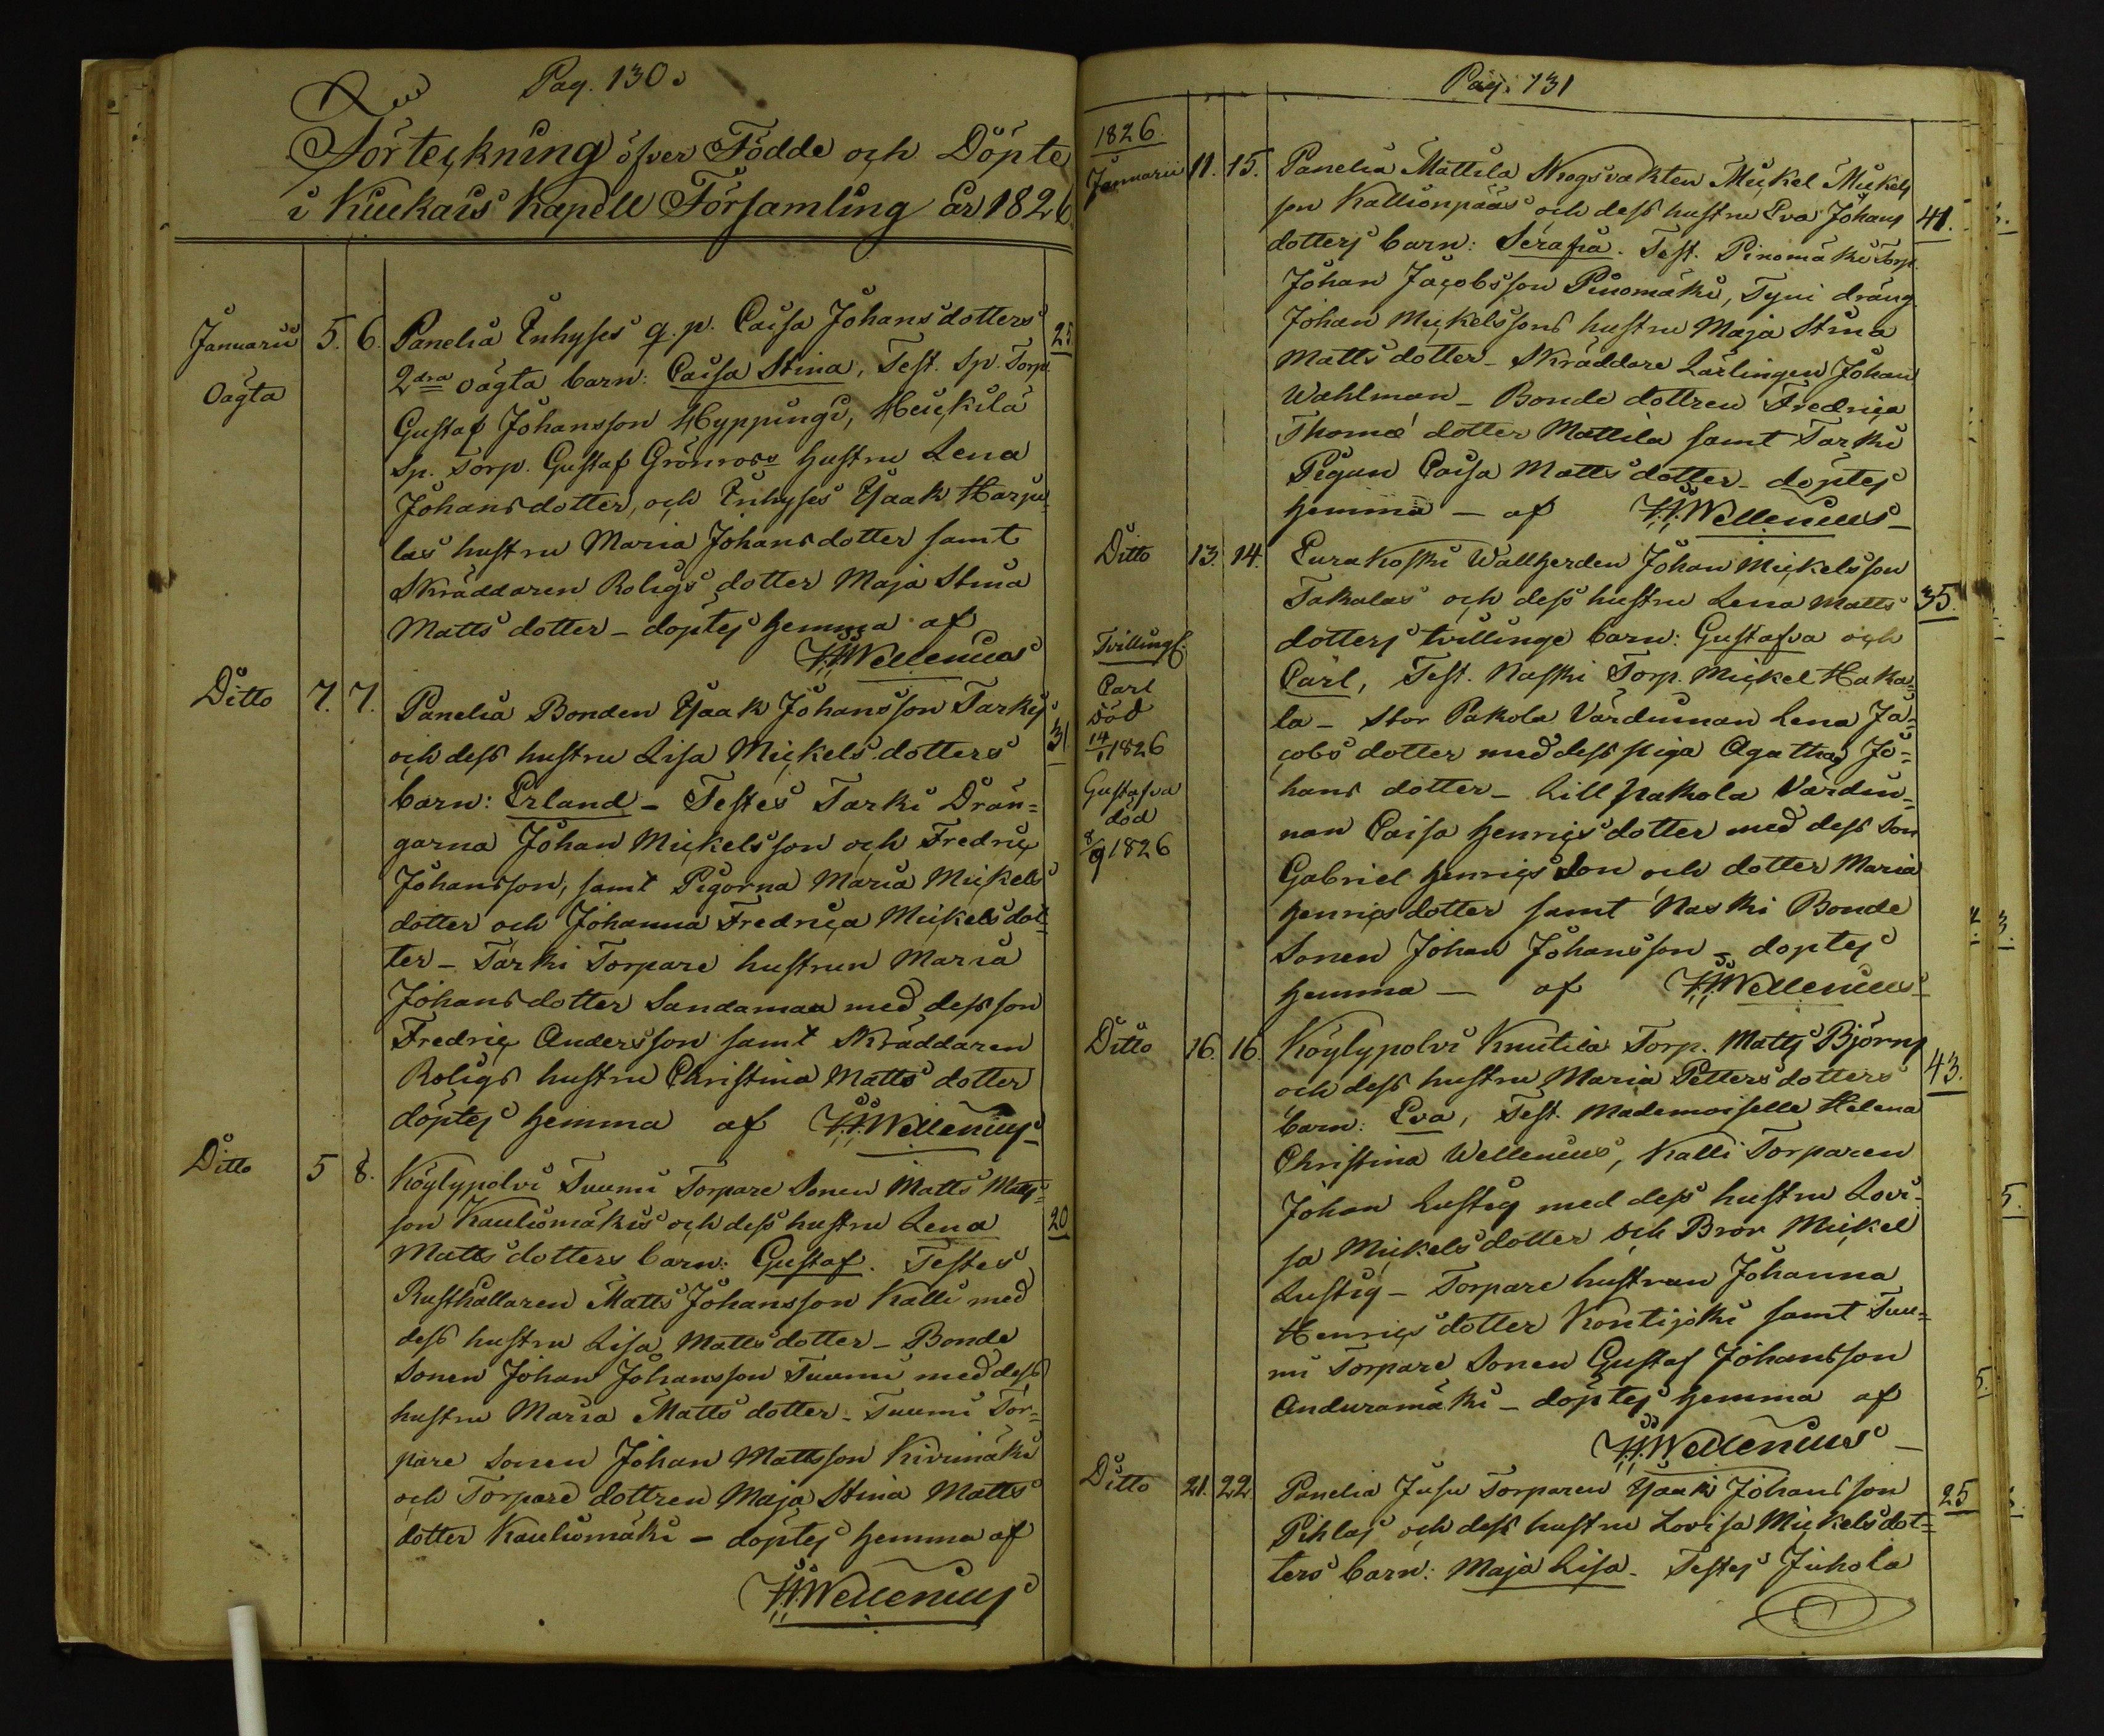 Pag. 130.
Förteckning öfver Födde och Döpte
i Kiukais Kapell Församling år 1826
Januarii 5. 6. Panelia Inhyses q. p. Caisa Johansdotters 25
Oägta 2dra oägta barn: Caisa Stina, Test. Sp. Torp.
Gustaf Johansson Hyppingi, Heickilä
Sp. Torp. Gustaf Grönroos hustru Lena
Johansdotter, och Inhyses Isaak Harju-
las hustru Maria Johansdotter samt
Skräddaren Roligs dotter Maja Stina
Matts dotter – döptes hemma af
H.H. Wellenius
Ditto 7. 7. Panelia Bonden Isaak Johansson Tarkis
och dess hustru Lisa Mickels dotters 31.
barn: Erland – Testes Tarki Drän=
garna Johan Mickelsson och Fredric
Johansson, samt Pigorna Maria Mickels
dotter och Johanna Fredrica Mickelsdot=
ter – Tarki Torpare hustrun Maria
Johansdotter Sandamaa med dess son
Fredric Andersson samt Skräddaren
Roligs hustru Christina Matts dotter
döptes hemma af H.H. Wellenius
Ditto 5 8. Köylypolvi Tuumi Torpare Sonen Matts Matts=
son Kauliomäkis och dess hustru Lena 20
Matts dotters barn: Gustaf. Testes
Rusthållaren Matts Johansson Kalli med
dess hustru Lisa Mattsdotter – Bonde
Sonen Johan Johansson Tuumi med dess
hustru Maria Matts dotter – Tuumi Tor=
pare Sonen Johan Mattsson Kivimäki
och Torpare dottren Maja Stina Matts
dotter Kauliomäki – döptes hemma af
H.H. Wellenius
Pag. 131
1826.
Januarii 11. 15. Panelia Mattila Skogsvakten Mickel Mickels
son Kallionpääs och dess hustru Eva Johans 41.
dotters barn: Serafia. Test. Pinomäki Torp.
Johan Jacobsson Pinomäki, Tyni dräng
Johan Mickelssons hustru Maja Stina
Matts dotter – Skräddare Lärlingen Johan
Wahlman – Bonde dottren Fredrica
Thomæ dotter Mattila samt Tarki
Pigan Caisa Matts dotter – döptes
hemma – af H.H. Wellenius –
Ditto 13. 14. Eurakoski Wallherden Johan Mickelsson
Takalas och dess hustru Lena Matts 35.
Tvillingf. dotters tvillinge barn: Gustafva och
Carl Carl, Test. Naski Torp. Mickel Haka=
död la – Stor Pakola Värdinnan Lena Ja=
14/1 1826 cobs dotter med dess piga Agatha Jo=
Gustafva hans dotter – Lill Pakola Värdin=
död nan Caisa Henrics dotter med dess son
8/9 1826 Gabriel Henrics Son och dotter Maria
Henrics dotter samt Naski Bonde
Sonen Johan Johansson – döptes
hemma – af H.H. Wellenius
Ditto 16. 16. Köylypolvi Knutila Torp. Matts Björns
och dess hustru Maria Petters dotters 43.
barn: Eva, Test. Mademoiselle Helena
Christina Wellenius, Kalli Torparen
Johan Lustig med dess hustru Lovi=
sa Mickels dotter och Bror Mickel
Lustig – Torpare hustrun Johanna
Henrics dotter Kontijoki samt Tuu=
mi Torpare Sonen Gustaf Johansson
Anduramäki – döptes hemma af
H.H. Wellenius –
Ditto 21. 22. Panelia Jusu Torparen Isaak Johansson 25
Pihlas och dess hustru Lovisa Mickelsdot=
ters barn: Maja Lisa. Testes Juhola